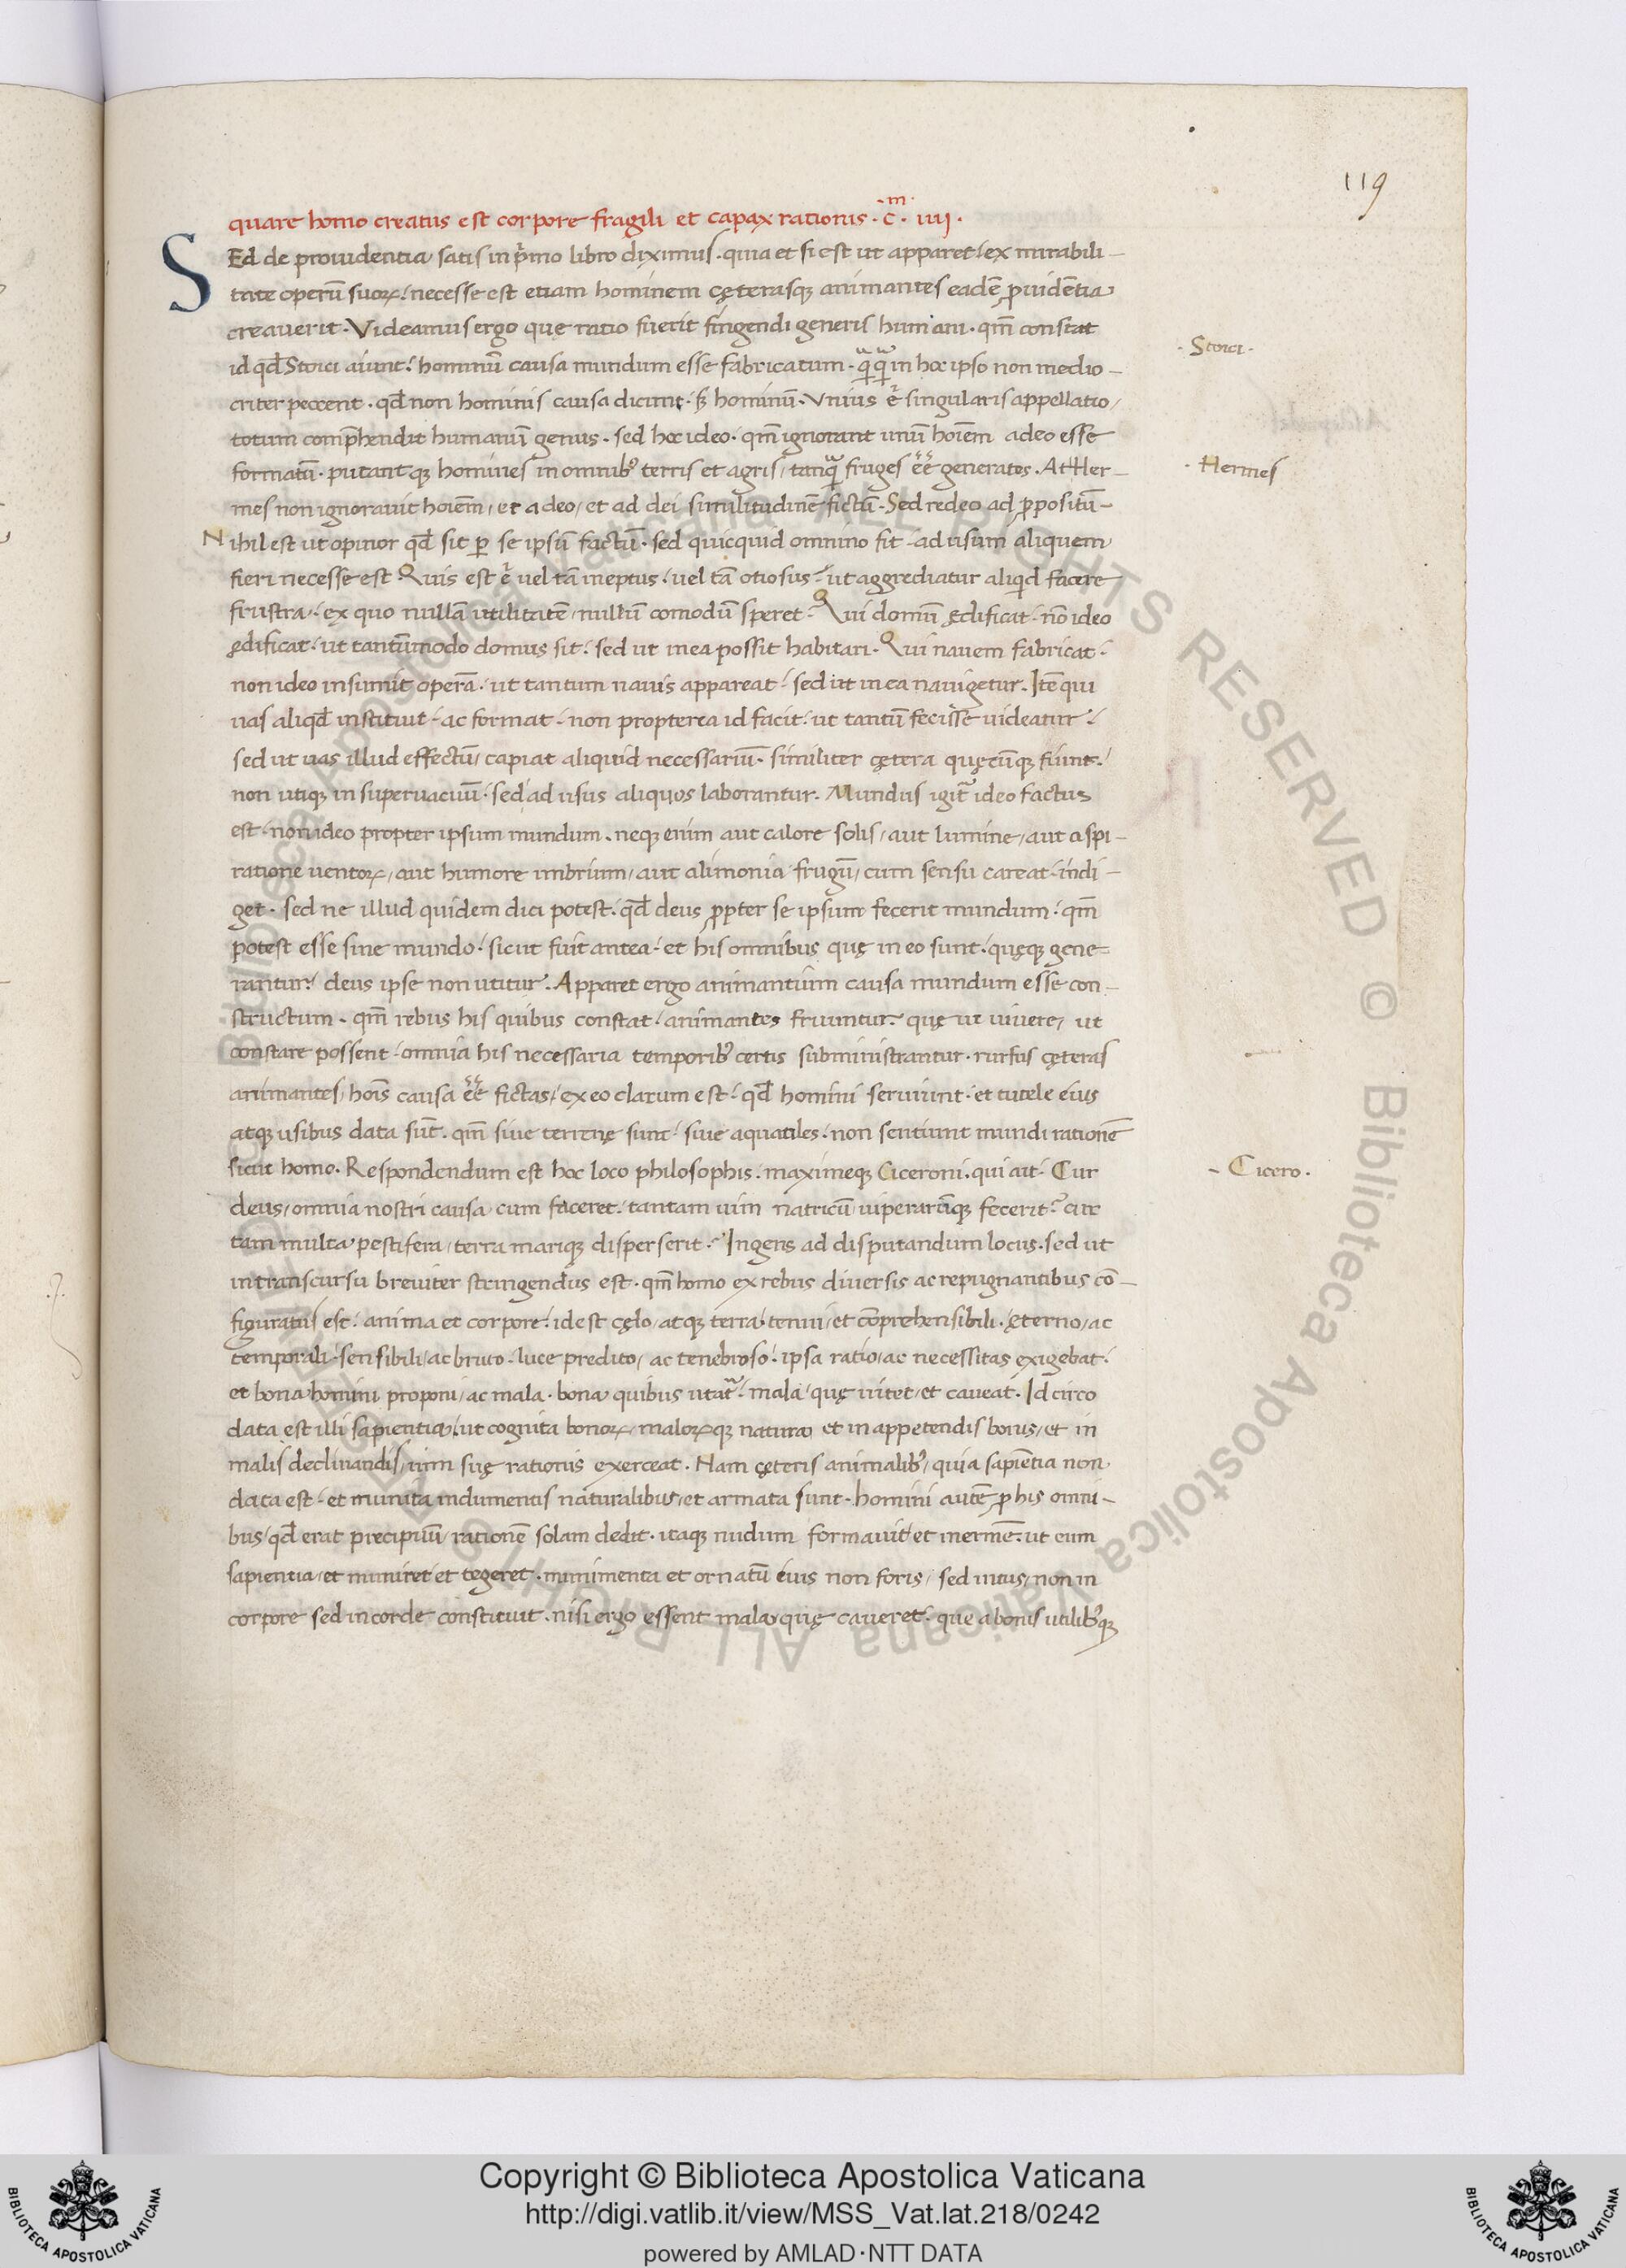 119
quare homo creatus est corpore fragili et capax rationis · c̄m · iiij ·
SEd de prouidentia satis in p̄mo libro diximus . quia et si est ut apparet / ex mirabili –
tate operū suoꝝ / necesse est etiam hominem cęterasqꝫ animantes eadē ꝓuidētia
creauerit . Videamus ergo que ratio fuerit fingendi generis humani . qm̄ constat
id qd̄ Stoici aiunt / hominū causa mundum esse fabricatum . qᵃqᵃ in hoc ipso non medio –
criter peccent . qd̄ non hominis causa dicunt . s; hominū . Vnius .n. singularis appellatio /
totum comp̄hendit humanū genus . sed hoc ideo . qm̄ ignorant unū hoīem a deo esse
formatū . putantqꝫ homines in omnibꝰ terris et agris / tanqᵃ fruges ēē generatos . At Her –
mes non ignorauit hoīem / et a deo / et ad dei similitudinē fictū . Sed redeo ad ꝓpositū –
Nihil est ut opinor qd̄ sit ꝑ se ipsū factū . sed quicquid omnino fit . ad usum aliquem
fieri necesse est Quis est .n. uel tā ineptus / uel tā otiosus / ut aggrediatur aliqd̄ facere
frustra / ex quo nullā utilitatē / nullū comodū speret . Qui domū ędificat . nō ideo
ędificat / ut tantūmodo domus sit / sed ut in ea possit habitari . Qui nauem fabricat /
non ideo insumit operā . ut tantum nauis appareat / sed ut in ea nauigetur . Itē qui
uas aliqd̄ instituit . ac format . non propterea id facit / ut tantū fecisse uideatur /
sed ut uas illud effectū / capiat aliquid necessariū . similiter cętera quęcūqꝫ fiunt /
non utiqꝫ in superuacuū . sed ad usus aliquos laborantur . Mundus igit͛ ideo factus
est . non ideo propter ipsum mundum . neqꝫ enim aut calore solis / aut lumine / aut aspi –
ratione uentoꝝ / aut humore imbrium / aut alimonia frugū / cum sensu careat . indi –
get . sed ne illud quidem dici potest . qd̄ deus ꝓpter se ipsum fecerit mundum . qm̄
potest esse sine mundo / sicut fuit antea . et his omnibus quę in eo sunt . quęqꝫ gene=
rantur / deus ipse non utitur . Apparet ergo animantium causa mundum esse con –
structum . qm̄ rebus his quibus constat / animantes fruuntur . quę ut uiuere / ut
constare possent . omnia his necessaria temporibꝰ certis subministrantur . rursus cęteras
animantes / hoīs causa ēē fictas / ex eo clarum est . qd̄ homini seruiunt . et tutele eius
atqꝫ usibus data sūt . qm̄ siue terrenę sunt . siue aquatiles . non sentiunt mundi rationē
sicut homo . Respondendum est hoc loco philosophis . maximeqꝫ Ciceroni . qui ait . Cur
deus / omnia nostri causa cum faceret . tantam uim natricū uiperarūqꝫ fecerit ? cur
tam multa pestifera / terra mariqꝫ disperserit . Ingens ad disputandum locus . sed ut
in transcursu breuiter stringendus est . qm̄ homo ex rebus diuersis ac repugnantibus cō –
figuratus est . anima et corpore . id est cęlo / atqꝫ terra . tenui / et cōprehensibili . ęterno / ac
temporali . sensibili / ac bruto . luce predito / ac tenebroso . ipsa ratio / ac necessitas exigebat .
et bona homini proponi / ac mala . bona quibus utat͛ . mala / quę uitet / et caueat . Id circo
data est illi sapientia / ut cognita bonoꝝ / maloꝝqꝫ natura et in appetendis bonis / et in
malis declinandis / uim suę rationis exerceat . Nam cęteris animalibꝰ / quia sapiētia non
data est . et munita indumentis naturalibus / et armata sunt . homini autē ꝓ his omni –
bus / qd̄ erat precipuū / rationē solam dedit . itaqꝫ nudum formauit et inermē . ut eum
sapientia / et muniret et tegeret . munimenta et ornatū eius non foris / sed intus / non in
corpore sed in corde constituit . nisi ergo essent mala / quę caueret . que a bonis utilibꝰqꝫ
· Stoici ·
· Hermes
– Cicero .
Copyright © Biblioteca Apostolica Vaticana
http://digi.vatlib.it/view/MSS_Vat.lat.218/0242
powered by AMLAD·NTT DATA
BIBLIOTECA APOSTOLICA VATICANA
BIBLIOTECA APOSTOLICA VATICANA
Biblioteca Apostolica Vaticana ALL RIGHTS RESERVED © Biblioteca Apostolica Vaticana ALL RIGHTS RESERVED ©